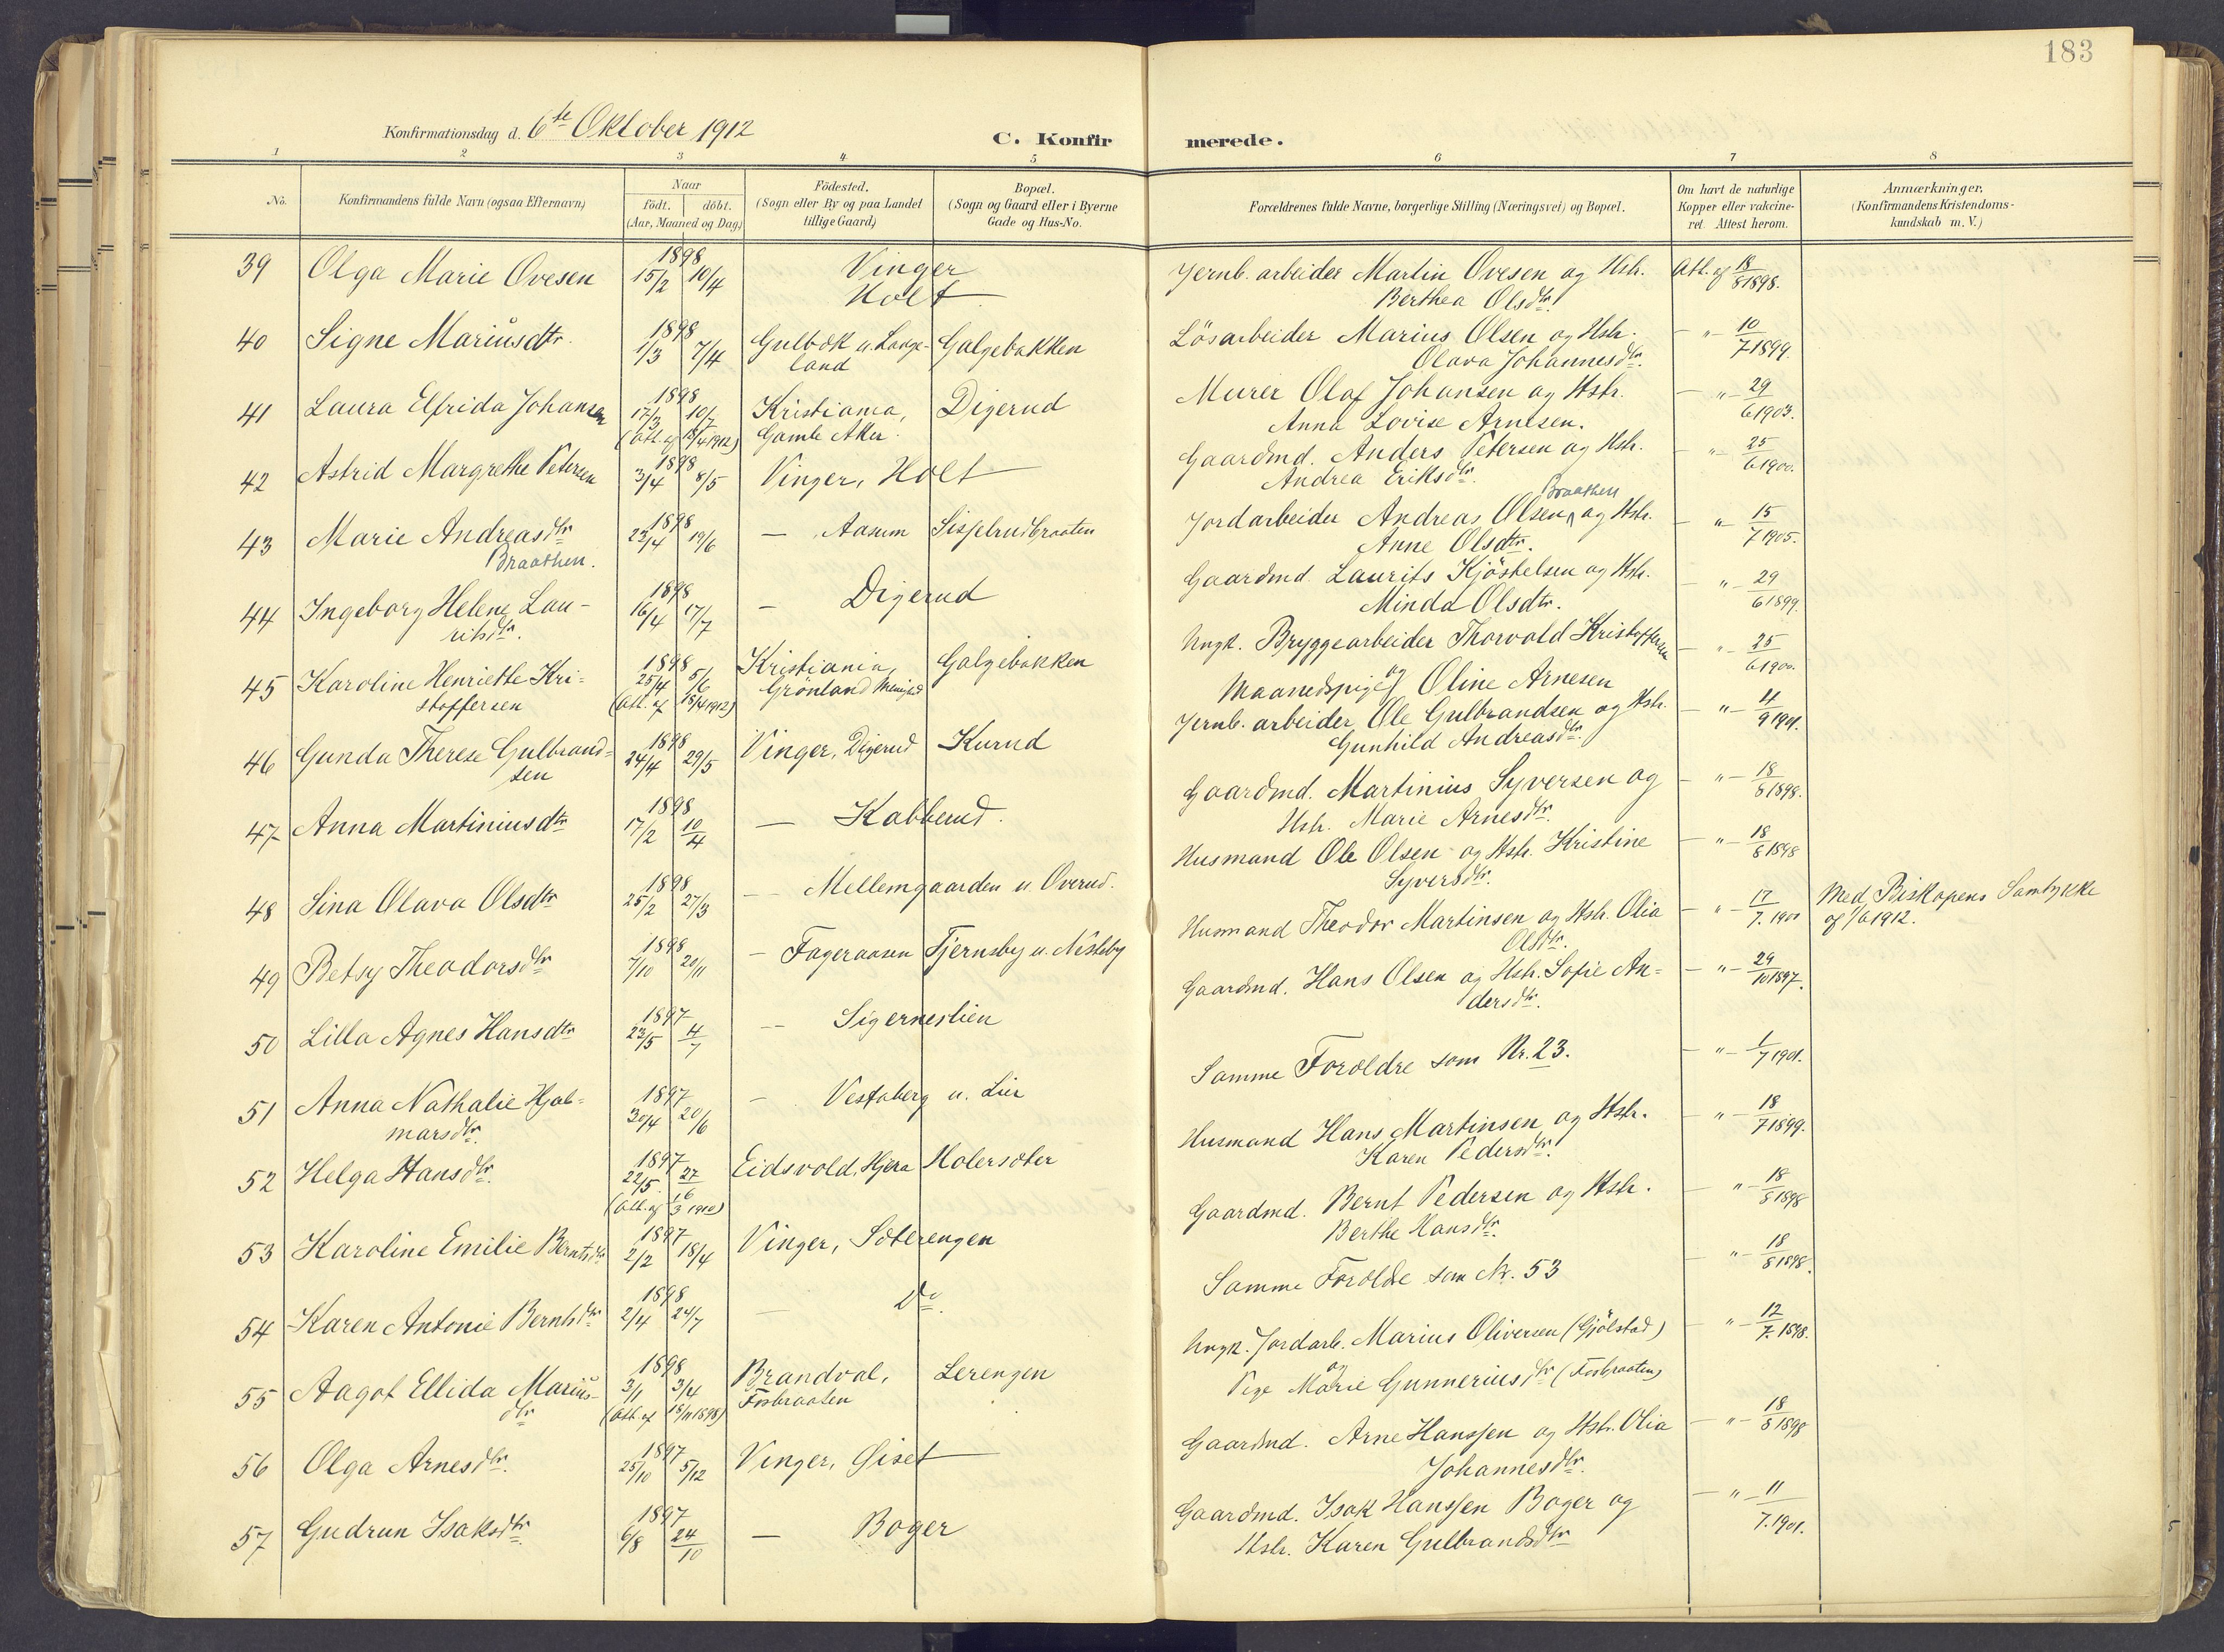 183
Konfirmationsdag d. 6te Oktober 1912
C. Konfirmerede.
1 2 3 4 5 6 7 8
No.
Konfirmandens fulde Navn (ogsaa Efternavn)
Naar
födt. döbt.
(Aar, Maaned og Dag)
Födested.
(Sogn eller By og paa Landet
tillige Gaard)
Bopæl.
(Sogn og Gaard eller i Byerne
Gade og Hus-No.
Forældrenes fulde Navne, borgerlige Stilling (Næringsvei) og Bopæl.
Om havt de naturlige
Kopper eller vakcine-
ret. Attest herom.
Anmærkninger.
(Konfirmandens Kristendoms-
kundskab m. V.)
39 Olga Marie Ovesen 1898 15/2 10/4 Vinger
Holt
Jernb. arbeider Martin Ovesen og Hstr.
Berthea Olsdtr.
Att. af 18/8 1898.
40 Signe Mariusdtr. 1898 1/3 7/4 Gulbæk u. Lange-
land
Galgebakken
Lösarbeider Marius Olsen og Hstr.
Olava Johannesdtr.
— " — 10/7 1899.
41 Laura Elfrida Johansen 1898 17/3 10/7
(Att. af 18/4 1912)
Kristiania,
Gamle Aker.
Digerud
Murer Olaf Johansen og Hstr.
Anna Lovise Arnesen.
— " — 29/6 1903.
42 Astrid Margrethe Petersen 1898 3/4 8/5 Vinger, Holt
Gaardmd. Anders Petersen og Hstr.
Andrea Eriksdtr.
— " — 25/6 1900.
43 Marie Andreasdtr
Braathen.
1898 22/4 19/6 — Aasum Sisselrudbraaten
Jordarbeider Andreas Olsen Braathen og Hstr.
Anne Olsdtr.
— " — 15/7 1905.
44 Ingeborg Helene Lau-
ritsdtr.
1898 16/4 17/7 — Digerud
Gaardmd. Laurits Kjöstelsen og Hstr.
Minda Olsdtr.
— " — 29/6 1899.
45 Karoline Henriette Kri-
stoffersen
1898 25/4 5/6
(Att. af 18/4 1912)
Kristiania,
Grönland Menighed
Galgebakken
Ungk. Bryggearbeider Thorvald Kristoffersen
og
Maanedspige Oline Arnesen
— " — 25/6 1900.
46 Gunda Therese Gulbrand-
sen
1898 24/4 29/5 Vinger, Digerud Kurud
Jernb. arbeider Ole Gulbrandsen og Hstr.
Gunhild Andreasdtr.
— " — 4/9 1901.
47 Anna Martiniusdtr 1898 17/2 10/4 — Kabberud.
Gaardmd. Martinius Syversen og
Hstr. Marie Arnesdtr.
— " — 18/8 1898.
48 Sina Olava Olsdtr 1898 25/2 27/3 — Mellemgaarden u. Overud.
Husmand Ole Olsen og Hstr. Kristine
Syversdtr.
— " — 18/8 1898
49 Betsy Theodorsdtr 1898 7/10 20/11 — Fageraasen Tjernsby u. Nesteby
Husmand Theodor Martinsen og Hstr. Olia
Olsdtr.
— " — 17/7. 1900
Med Biskopens Samtykke
af 1/6 1912.
50 Lilla Agnes Hansdtr 1897 23/5 4/7 — Sigerneslien
Gaardmd. Hans Olsen og Hstr. Sofie An-
dersdtr.
— " — 29/10 1897.
51 Anna Nathalie Hjal-
marsdtr.
1897 30/4 20/6 — Vestaberg u. Lier
Samme Foræaldre som Nr. 23.
— " — 1/7 1901.
52 Helga Hansdtr. 1897 22/5. 27/6
(Att. af 1/3 1910)
Eidsvold, Hjera Holersæter
Husmand Hans Martinsen og Hstr.
Karen Pedersdtr.
— " — 18/7 1899.
53 Karoline Emilie Berntsdtr 1897 2/2 18/4 Vinger, Sæterengen
Gaardmd. Bernt Pedersen og Hstr.
Berthe Hansdtr.
— " — 18/8 1898
54 Karen Antonie Berntsdtr 1898 2/4 24/7 — Do.
Samme Forældre som Nr. 53
— " — 18/8 1898.
55 Aagot Ellida Marius-
dtr
1898 3/1 3/4
(Att. af 18/11 1898)
Brandval,
Fosbraaten
Lerengen
Ungk. Jordarb. Marius Oliversen (Gjölstad)
og
Pige Marie Gunneriusdtr (Fosbraaten)
— " — 12/7. 1898.
56 Olga Arnesdtr. 1897 25/10 5/12 Vinger, Giset
Gaardmd. Arne Hanssen og Hstr. Olia
Johannesdtr.
— " — 18/8 1898
57 Gudrun Isaksdtr. 1897 6/8 24/10 — Boger
Gaardmd. Isak Hanssen Boger og
Hstr. Karen Gulbrandsdtr
— " — 11/7. 1901.